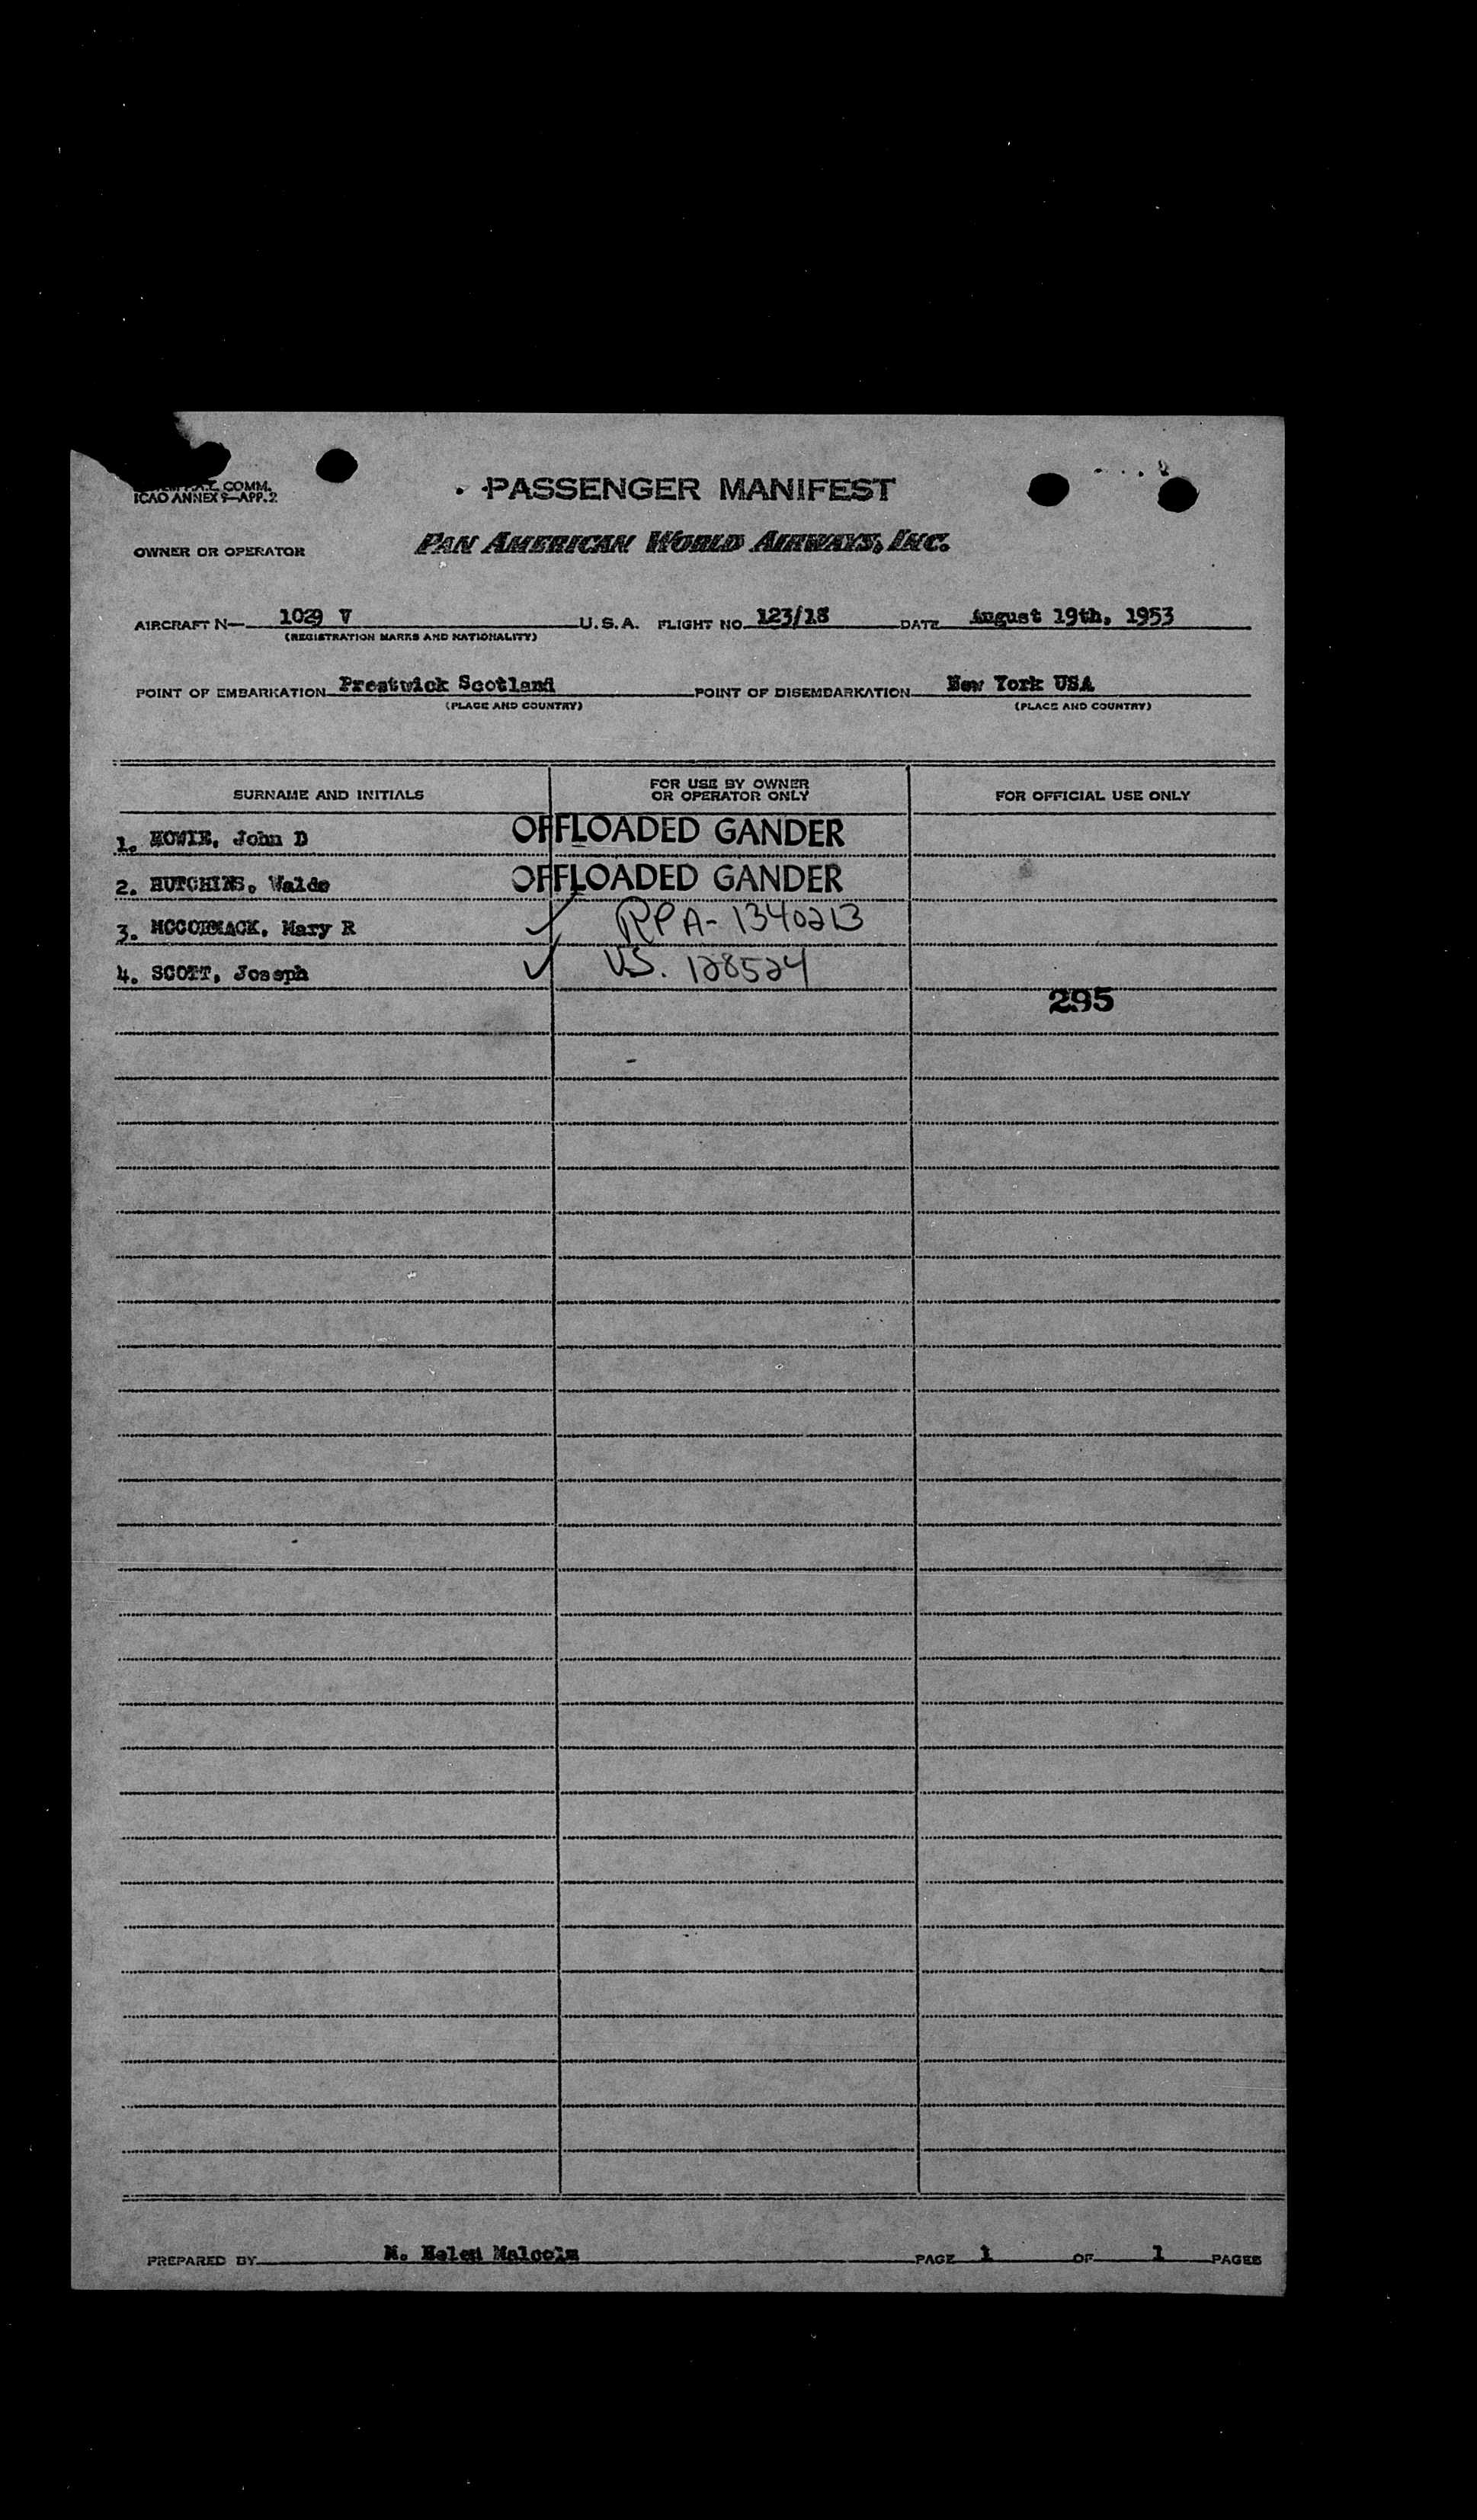 COMM.
ICAO ANNEX 9—APP.2
PASSENGER MANIFEST
OWNER OR OPERATOR PAN AMERICAN WORLD AIRWAYS, INC.
AIRCRAFT N— 1029 V U.S.A. FLIGHT NO. 123/18 DATE August 19th, 1953
(REGISTRATION MARKS AND NATIONALITY)
POINT OF EMBARKATION Prestwick Scotland POINT OF DISEMBARKATION New York USA
(PLACE AND COUNTRY) (PLACE AND COUNTRY)
SURNAME AND INITIALS FOR USE BY OWNER OR OPERATOR ONLY FOR OFFICIAL USE ONLY
1. HOWIE, John D OFFLOADED GANDER
2. HUTCHINS, Waldo OFFLOADED GANDER
3. MCCORMACK, Mary R ✓ RPA-1340213
4. SCOTT, Joseph ✓ US. 128524
295
PREPARED BY M. Helen Malcolm PAGE 1 OF 1 PAGES